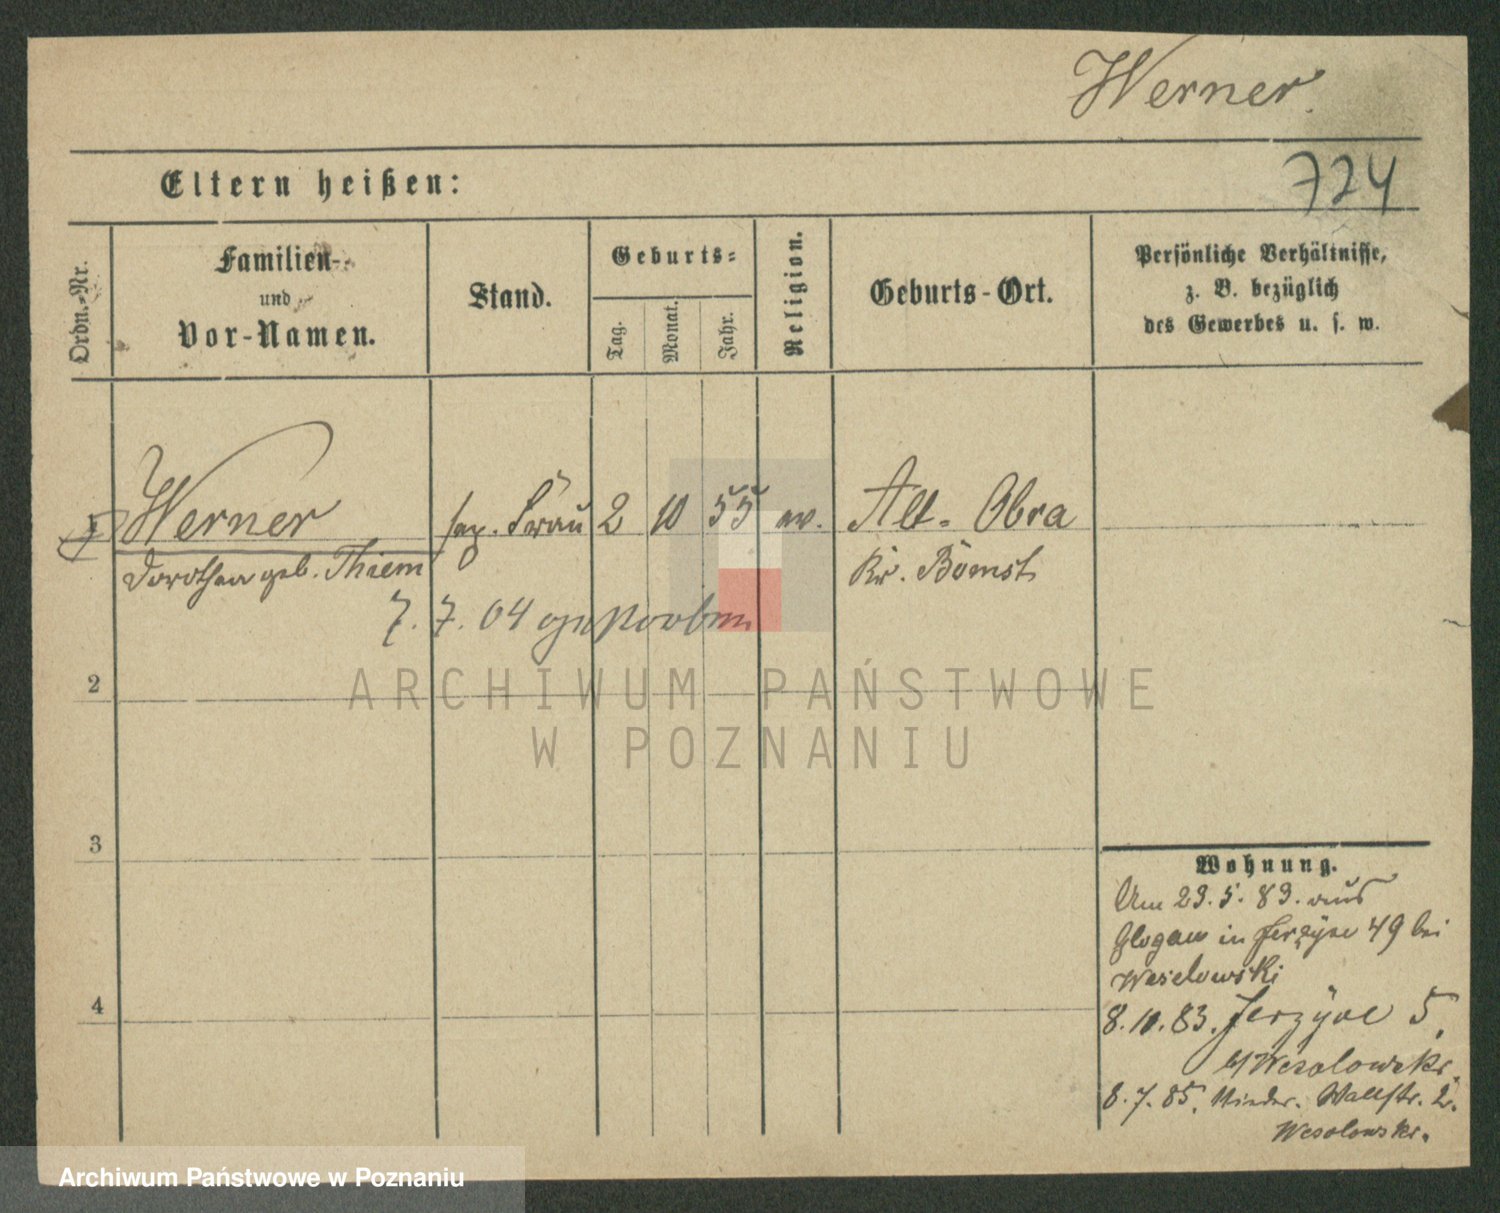 Werner.
724
Eltern heißen:
Ordn.-Nr.
Familien-
und
Vor-Namen.
Stand.
Geburts-
Tag.
Monat.
Jahr.
Religion.
Geburts-Ort.
Persönliche Verhältnisse,
z. B. bezüglich
des Gewerbes u. s. w.
1 Werner sep. Frau 2 10 55 ev. Alt-Obra
Dorothea geb. Thiem Kr. Bomst
7. 7. 04
2
3
4
Wohnung.
Am 23. 5. 83. aus
Glogau in Jerzyce 49 bei
Wesolowski
8. 10. 83. Jerzyce 5.
b/Wesolowski.
8. 7. 85. Nieder. Wallstr. 2.
Wesolowski.
ARCHIWUM PAŃSTWOWE
W POZNANIU
Archiwum Państwowe w Poznaniu